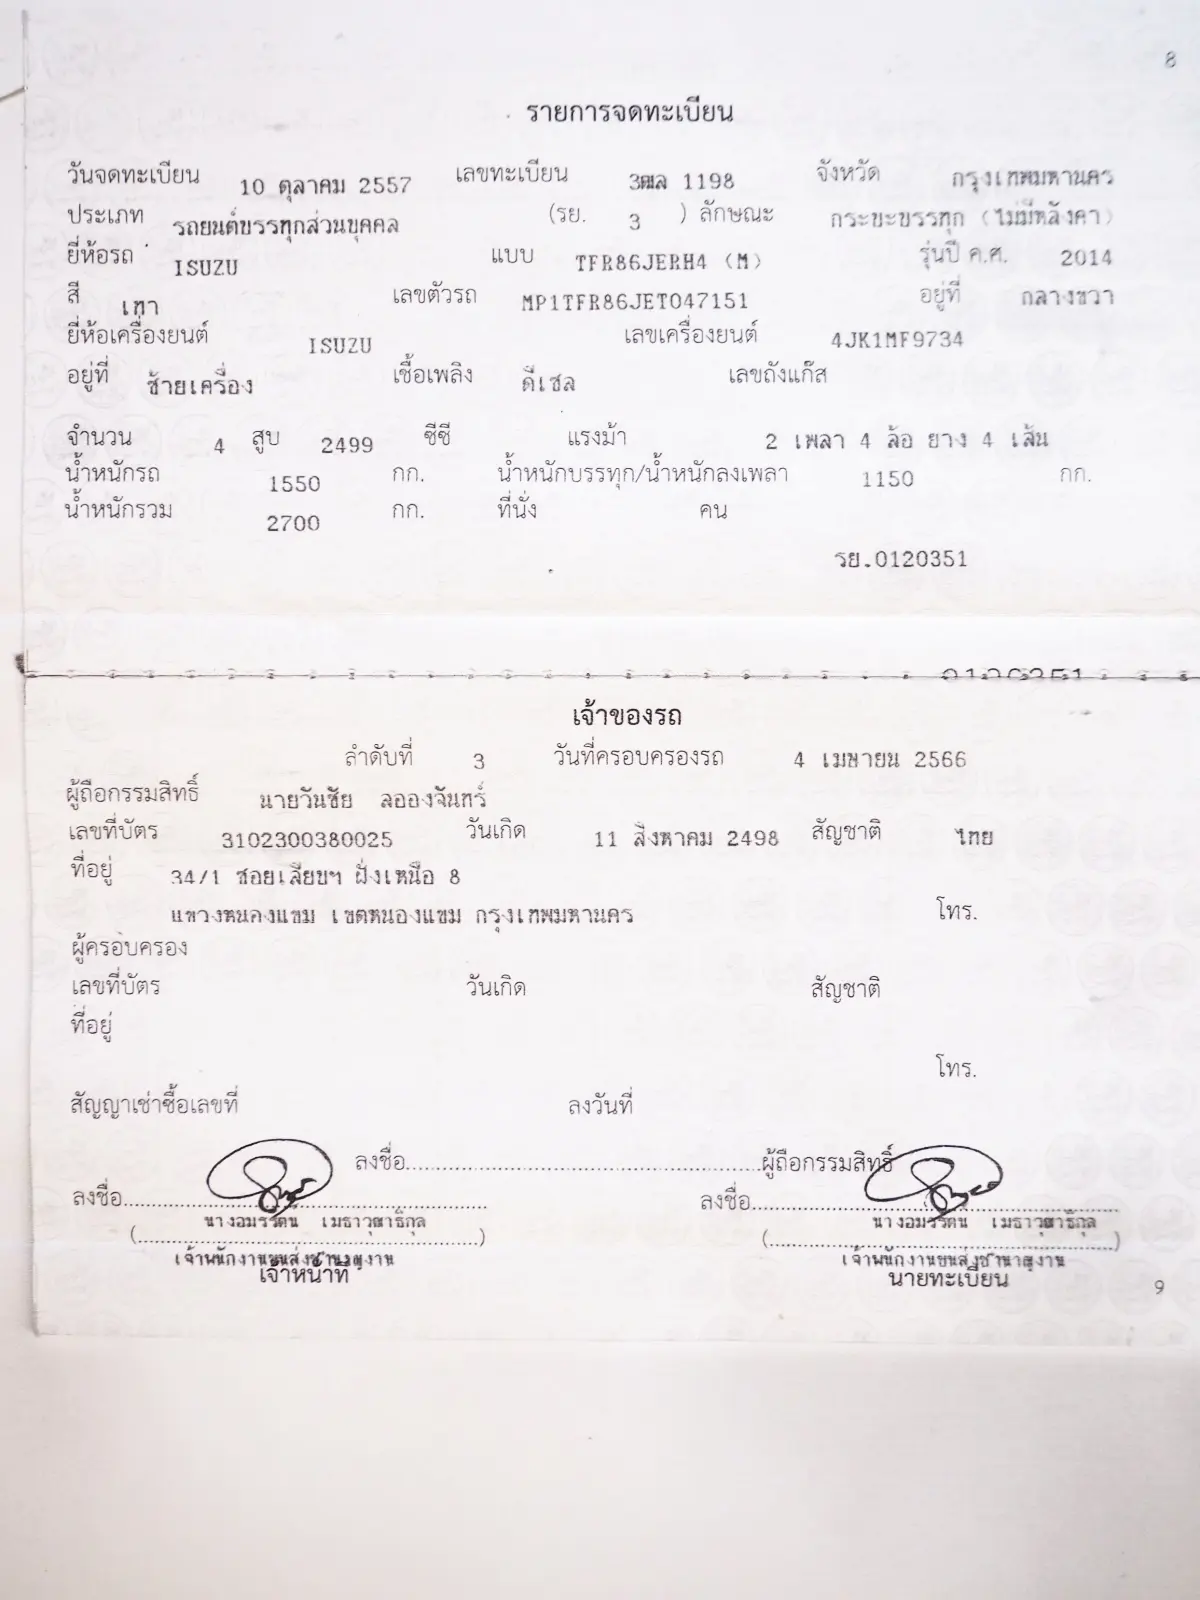 8
รายการจดทะเบียน
วันจดทะเบียน 10 ตุลาคม 2557 เลขทะเบียน 3ฒล 1198 จังหวัด กรุงเทพมหานคร
ประเภท รถยนต์บรรทุกส่วนบุคคล (รย. 3 ) ลักษณะ กระบะบรรทุก (ไม่มีหลังคา)
ยี่ห้อรถ ISUZU แบบ TFR86JERH4 (M) รุ่นปี ค.ศ. 2014
สี เทา เลขตัวรถ MP1TFR86JET047151 อยู่ที่ กลางขวา
ยี่ห้อเครื่องยนต์ ISUZU เลขเครื่องยนต์ 4JK1MF9734
อยู่ที่ ซ้ายเครื่อง เชื้อเพลิง ดีเซล เลขถังแก๊ส
จำนวน 4 สูบ 2499 ซีซี แรงม้า 2 เพลา 4 ล้อ ยาง 4 เส้น
น้ำหนักรถ 1550 กก. น้ำหนักบรรทุก/น้ำหนักลงเพลา 1150 กก.
น้ำหนักรวม 2700 กก. ที่นั่ง คน
รย.0120351
เจ้าของรถ
ลำดับที่ 3 วันที่ครอบครองรถ 4 เมษายน 2566
ผู้ถือกรรมสิทธิ์ นายวันชัย ลอองจันทร์
เลขที่บัตร 3102300380025 วันเกิด 11 สิงหาคม 2498 สัญชาติ ไทย
ที่อยู่ 34/1 ซอยเลียบฯ ฝั่งเหนือ 8
แขวงหนองแขม เขตหนองแขม กรุงเทพมหานคร โทร.
ผู้ครอบครอง
เลขที่บัตร วันเกิด สัญชาติ
ที่อยู่
โทร.
สัญญาเช่าซื้อเลขที่ ลงวันที่
ลงชื่อ ผู้ถือกรรมสิทธิ์
ลงชื่อ ลงชื่อ
นางอมรรัตน์ เมธาวุฒาธิกุล นางอมรรัตน์ เมธาวุฒาธิกุล
เจ้าพนักงานขนส่งชำนาญงาน เจ้าพนักงานขนส่งชำนาญงาน
เจ้าหน้าที่ นายทะเบียน
9